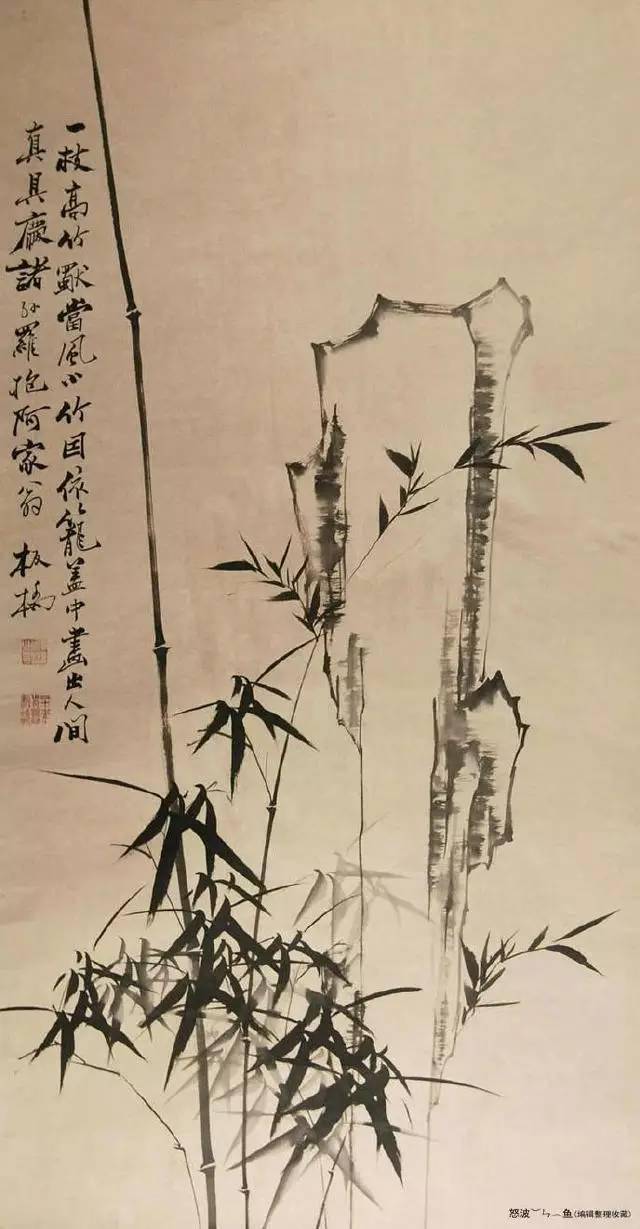 一枝高竹獨當風小竹因依籠蓋中畫出人間
真具慶諸孫羅抱阿家翁 板橋
怒波︶ㄣ一鱼(编辑整理收藏)